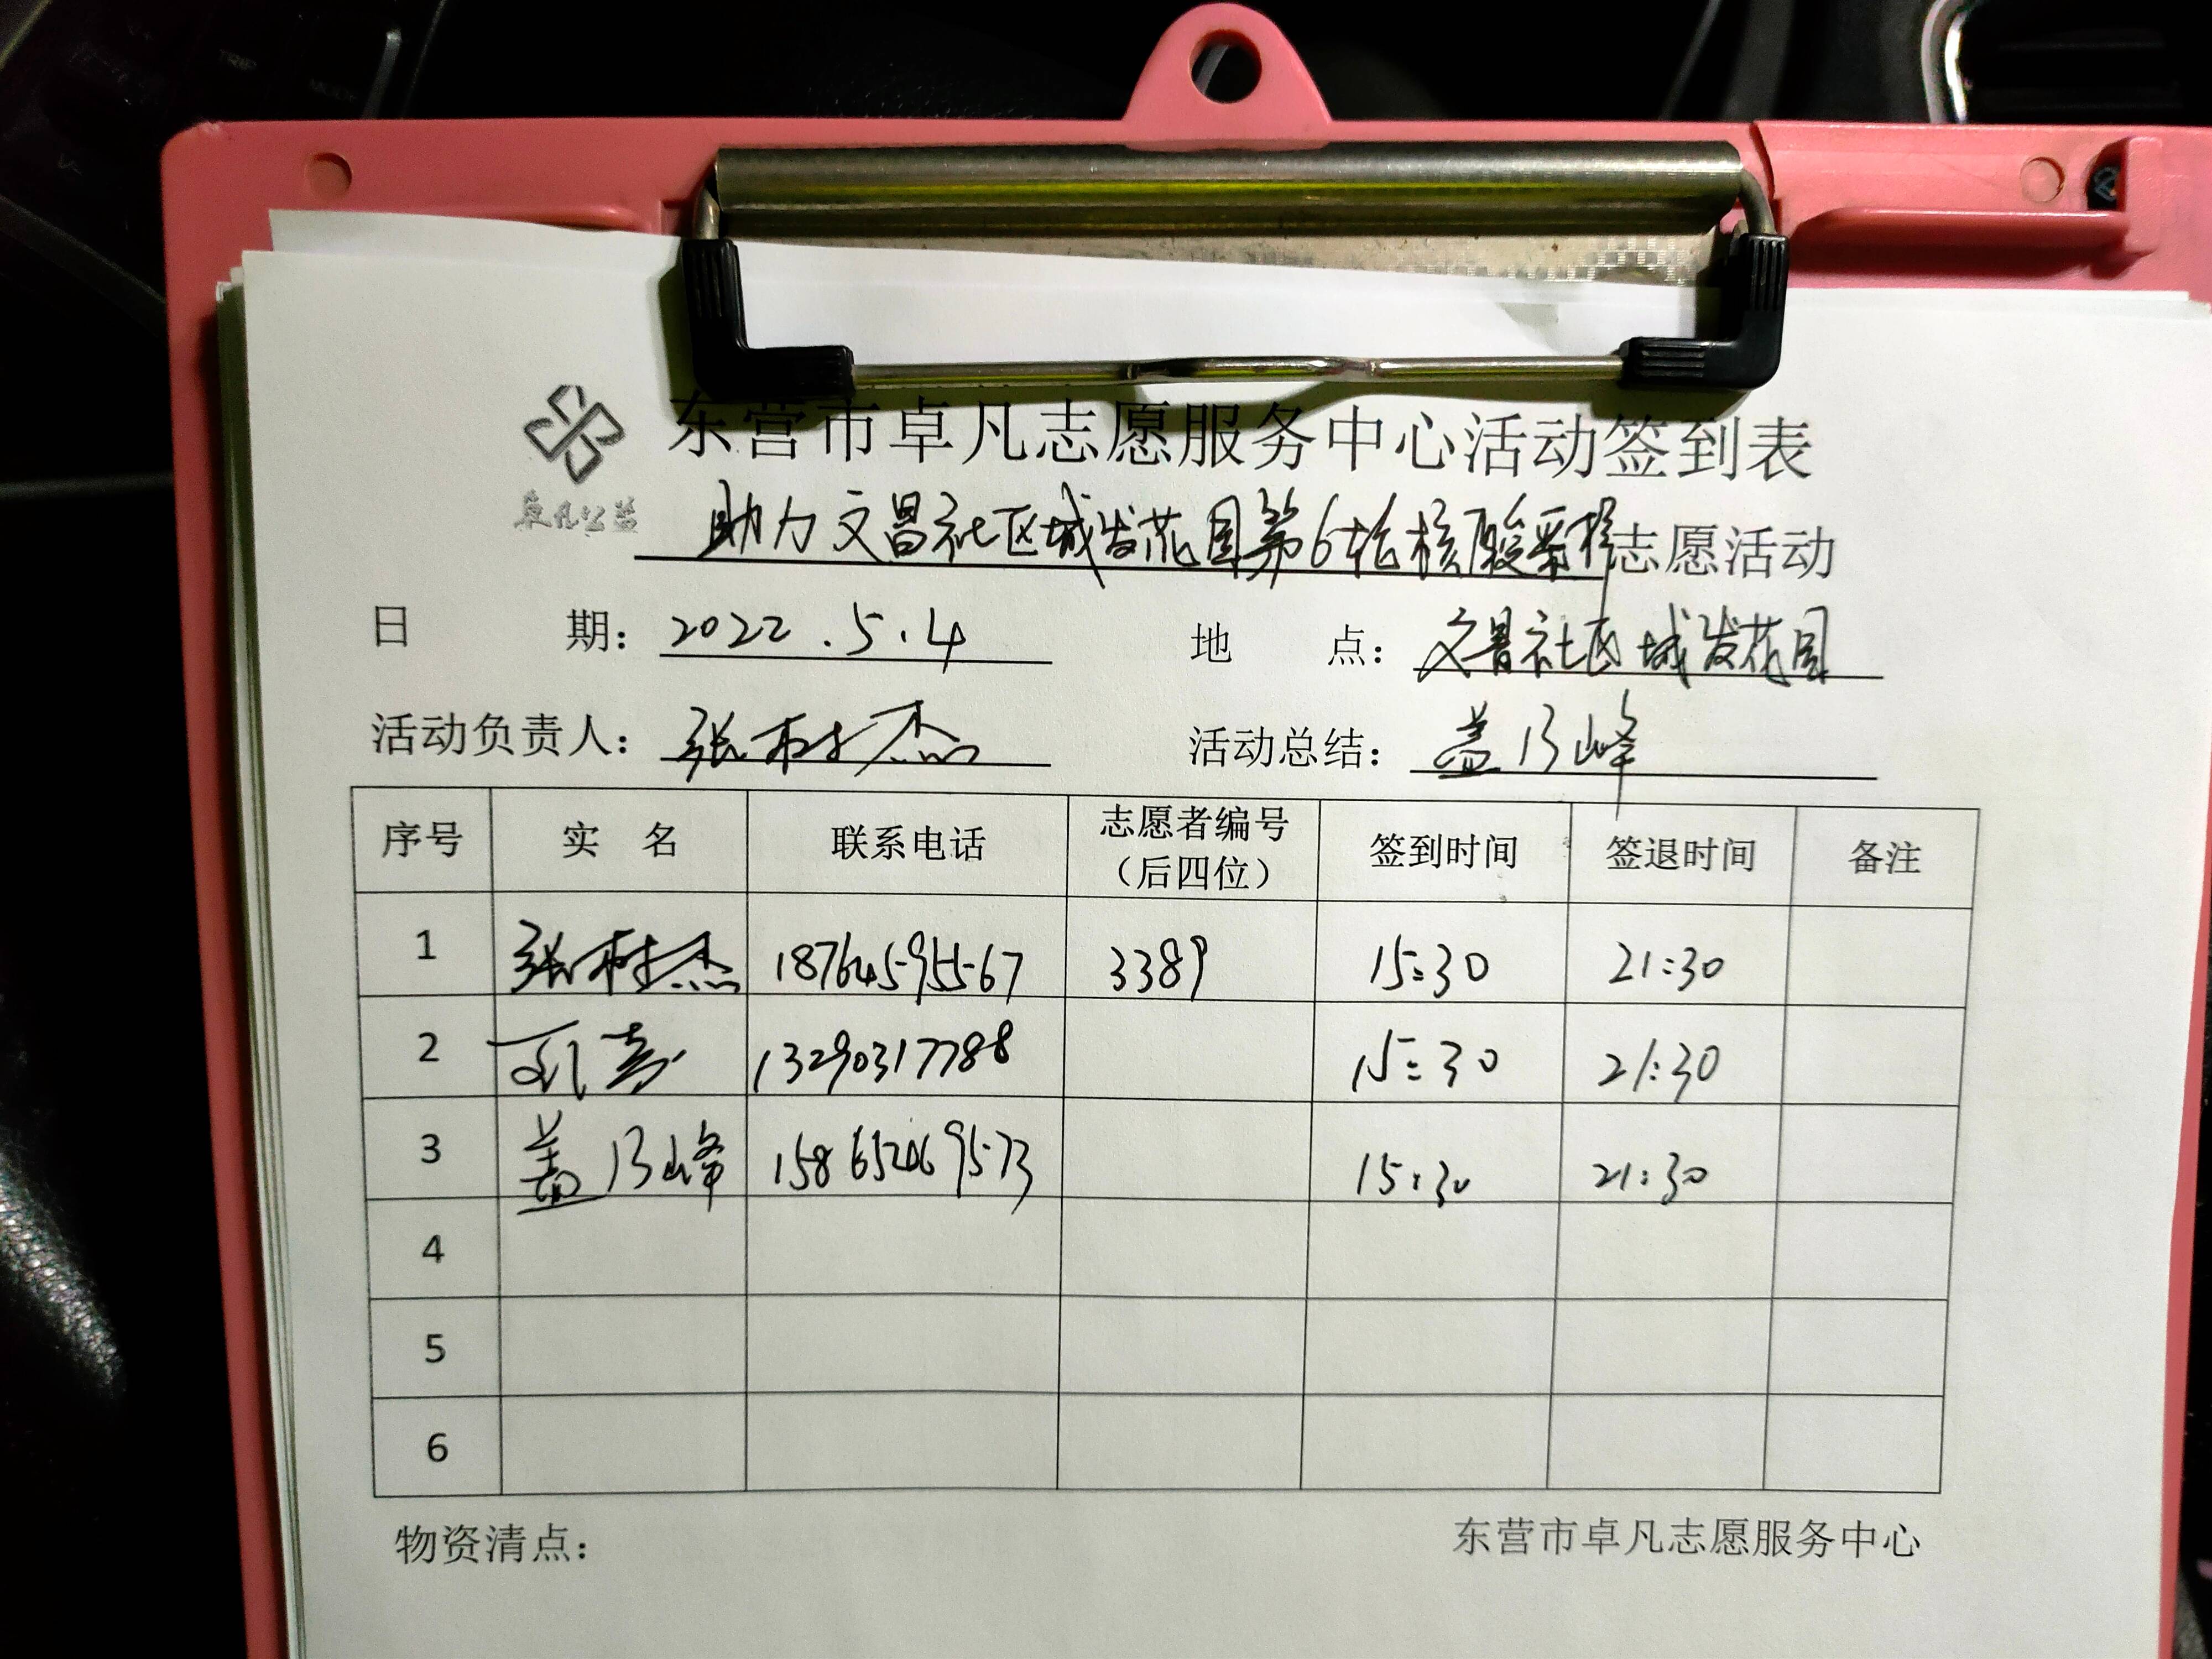 东营市卓凡志愿服务中心活动签到表
卓凡公益
助力文昌社区城发花园第6轮核酸采样志愿活动
日 期： 2022.5.4 地 点： 文昌社区城发花园
活动负责人： 张树杰 活动总结： 盖乃峰
序号 实 名 联系电话 志愿者编号（后四位） 签到时间 签退时间 备注
1 张树杰 18764595567 3389 15:30 21:30
2 13290317788 15:30 21:30
3 盖乃峰 158652069573 15:30 21:30
4
5
6
物资清点： 东营市卓凡志愿服务中心